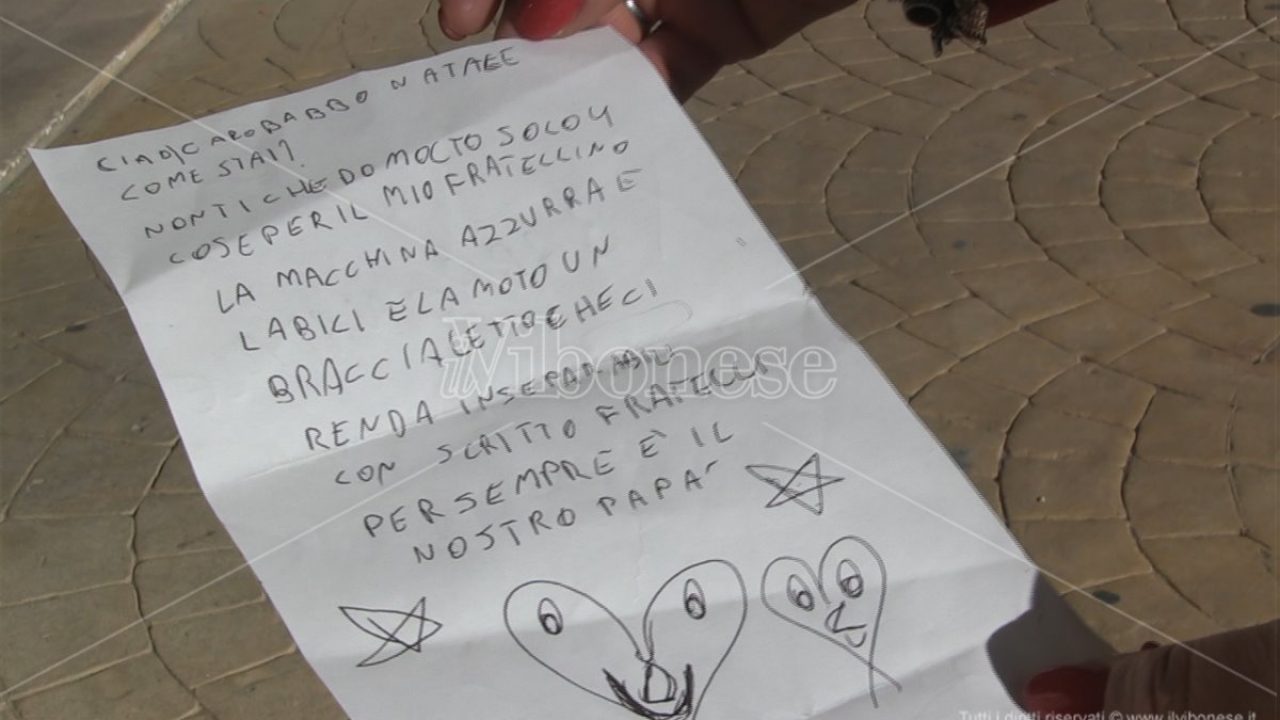 CIAO CARO BABBO NATALE
COME STAI?
NON TI CHEDO MOCTO SOLO 4
COSE PER IL MIO FRATELLINO
LA MACCHINA AZZURRA E
LA BICI E LA MOTO UN
BRACCIALETTO E HE CI
RENDA INSEPARABILI
CON SCRITTO FRATELLI
PER SEMPRE È IL
NOSTRO PAPA'
ilVibonese
Tutti i diritti riservati © www.ilvibonese.it